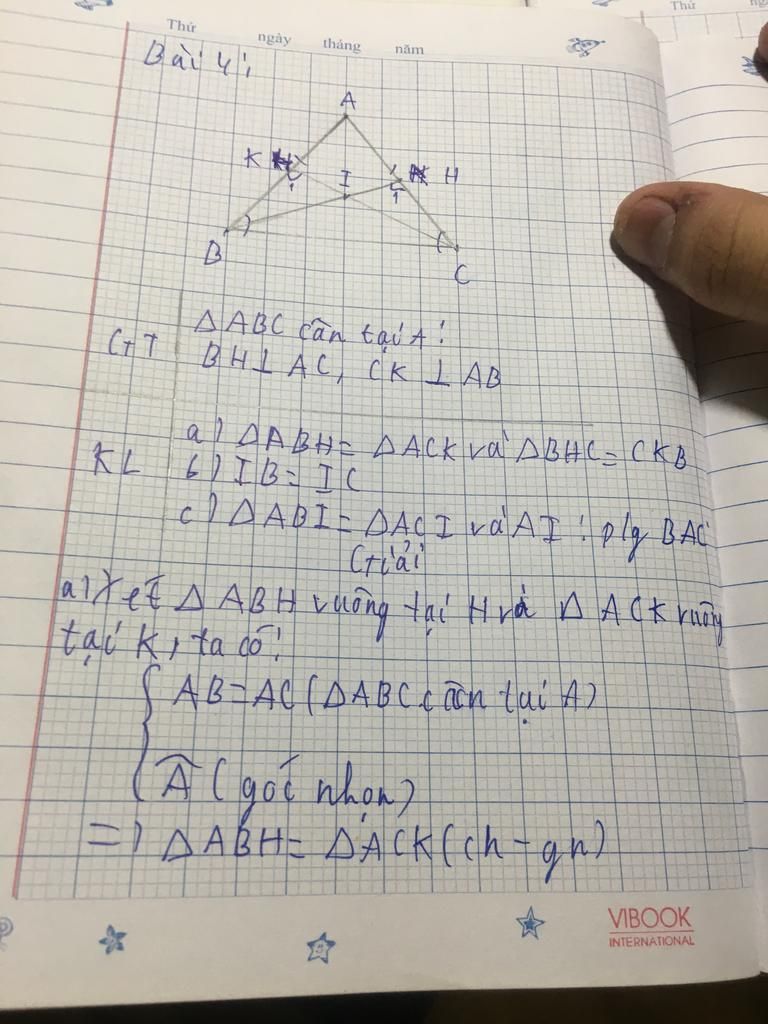 Thứ ngày tháng năm
Thứ
Bài 4:
A
K H
I
1 1
B
C
GT
ΔABC cân tại A:
BH⊥AC, CK ⊥AB
KL
a) ΔABH= ΔACK và ΔBHC= CKB
b) IB= IC
c) ΔABI= ΔACI và AI : p/g BAC
Giải
a) Xét ΔABH vuông tại H và ΔACK vuông
tại K, ta có:
AB=AC(ΔABC cân tại A)
Â (góc nhọn)
=) ΔABH= ΔACK(ch-gn)
VIBOOK
INTERNATIONAL